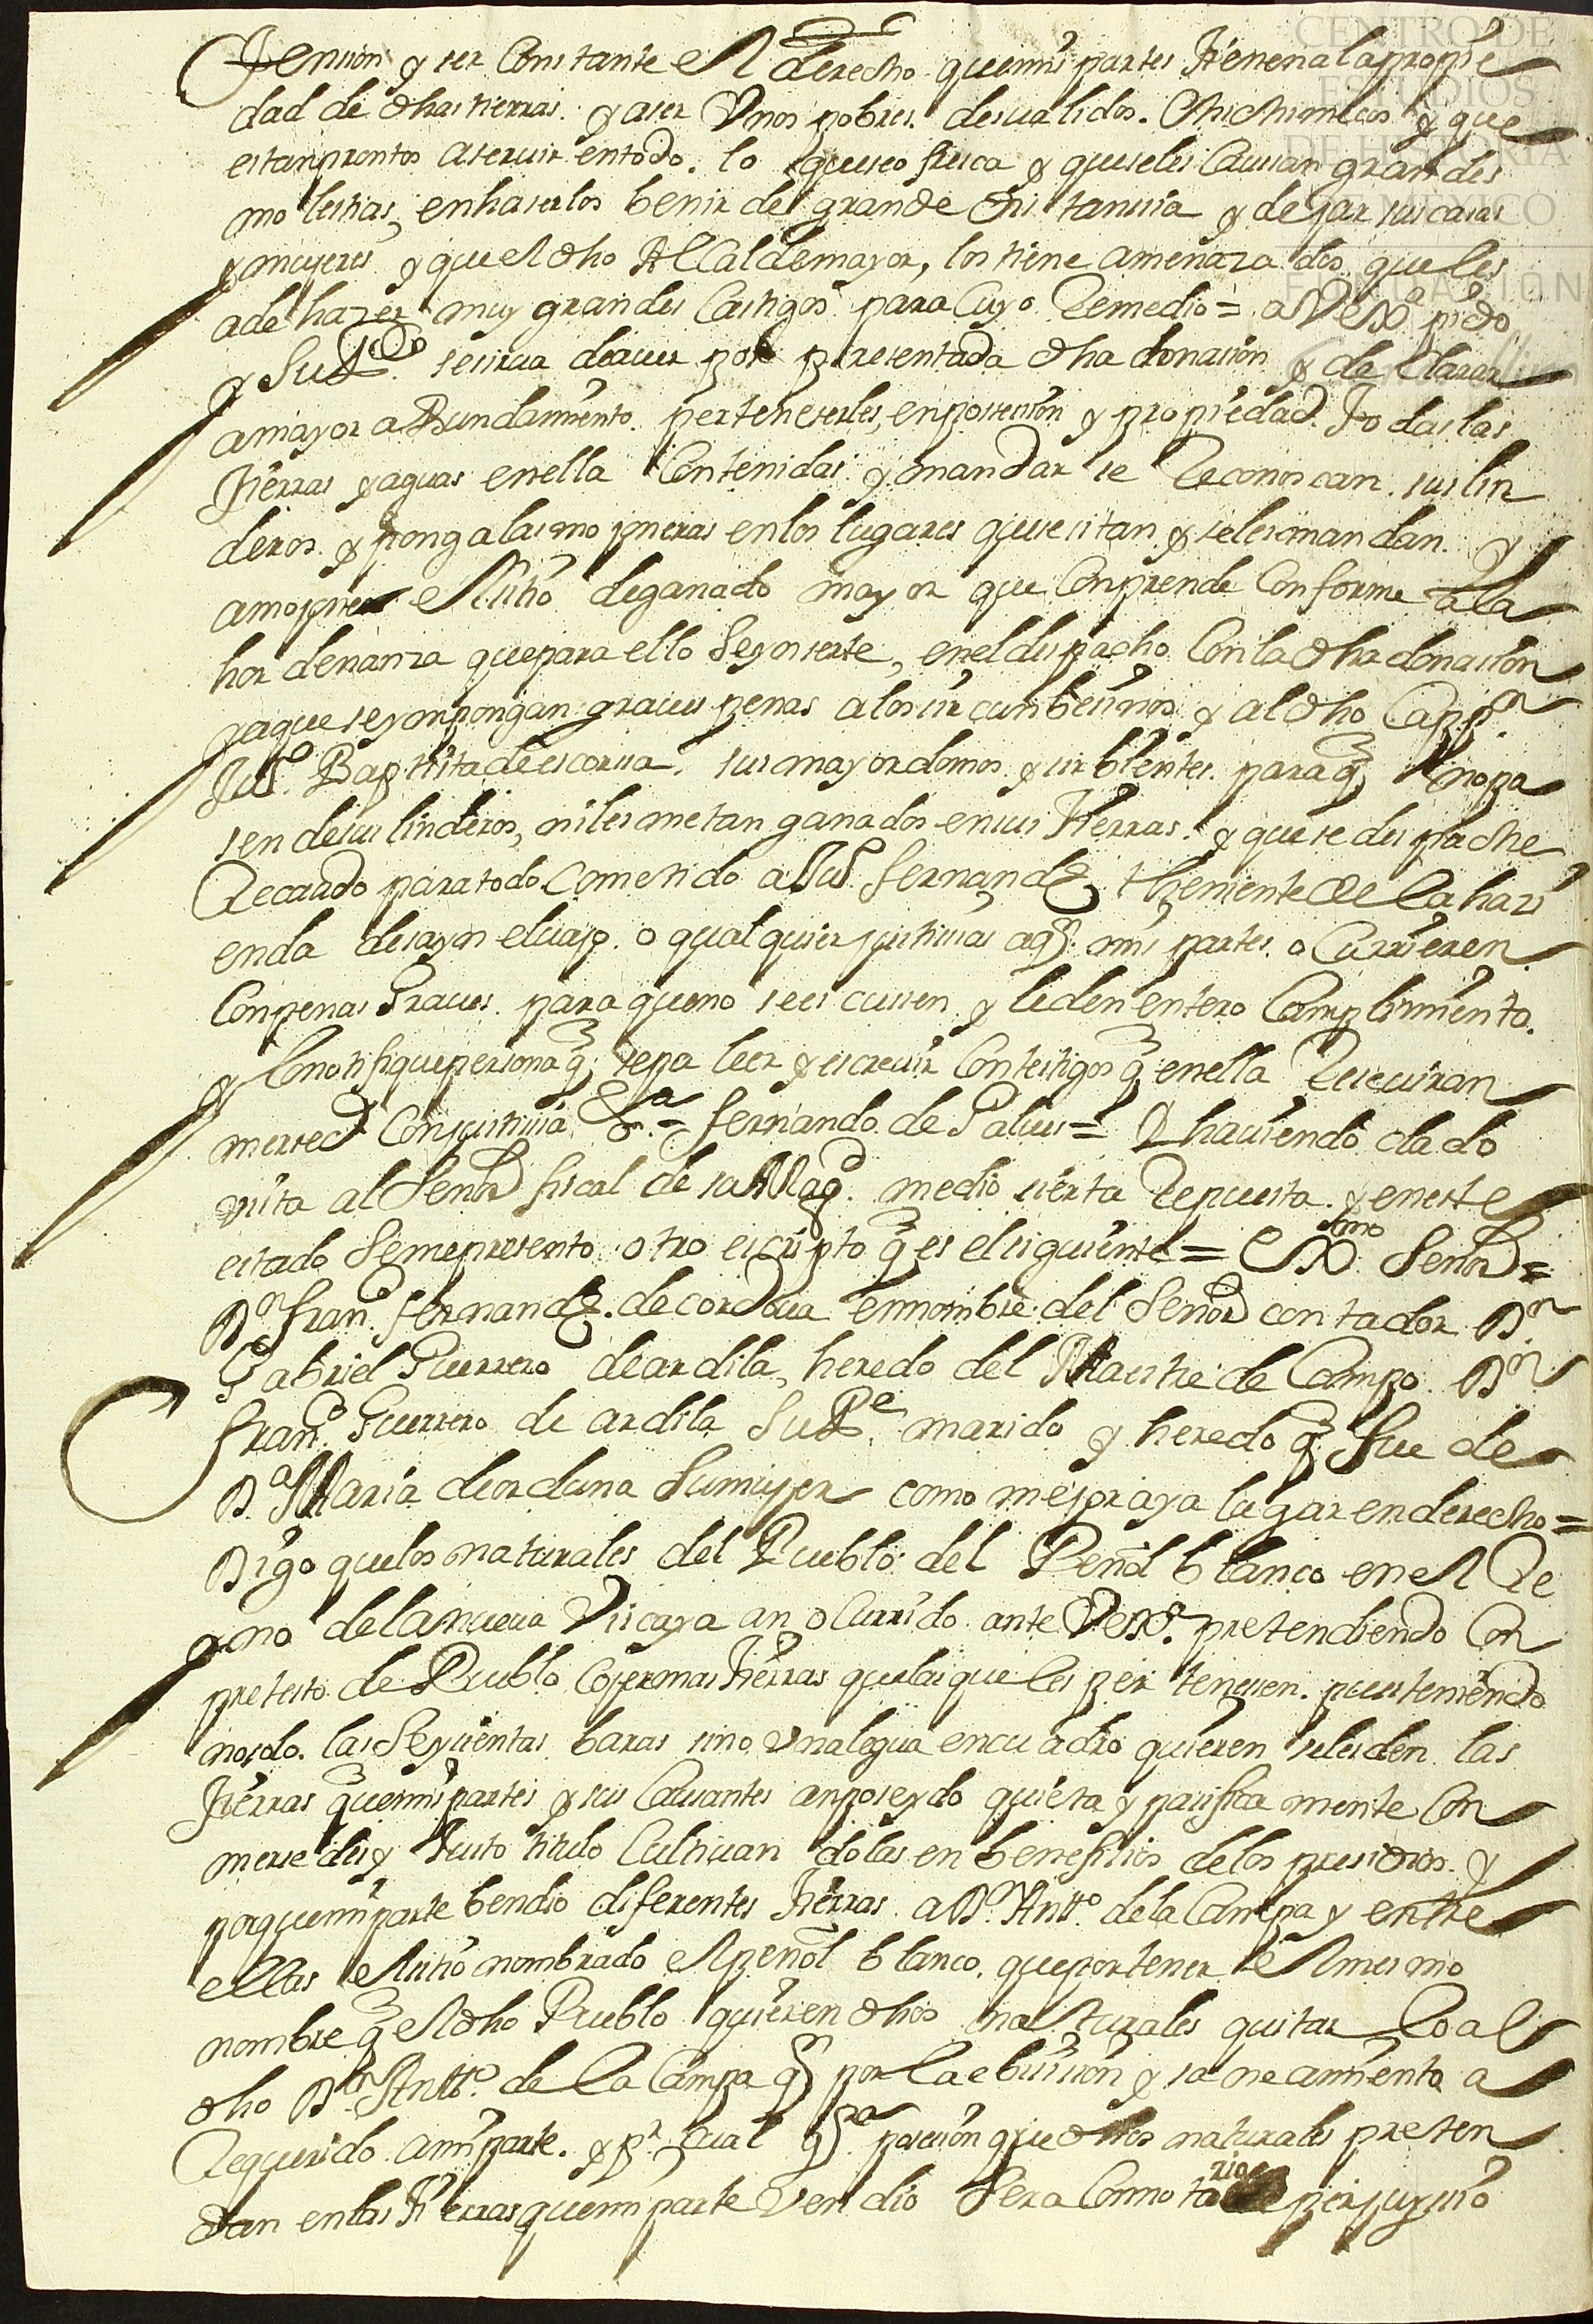 tension y ser Constante El derecho que mis partes tienen a la propie
dad de dhas tierras. y a ser Unos pobres. desvalidos. Chichimecos y que
estan prontos a seruir en todo. lo que se ofresca y que se les Causan grandes
molestias, en haserlos benir de grande distansia y dejar sus casas
y mugeres y que El dho Alcalde mayor, los tiene amenazados que les
a de hazer muy grandes Castigos para Cuyo Remedio = a V Exa pido
y Supco se sirua de auer por presentada dha donasion y declarar
a mayor abundamiento. perteneserles, en possession y propiedad. todas las
tierras y aguas en ella Contenidas y mandar se Reconoscan. sus lin
deros y ponga las mojoneras en los lugares que se sitan y se les mandan. y
amojonen El sitio de ganado mayor que Conprende Conforme a la
hordenanza que para ello se ynserte, en el despacho Con la dha donasion
y a que se ynpongan graues penas a los sircunbesinos y al dho Cappn
Juo Baptista de escorsa. sus mayordomos y sirbientes. para q no pa
sen de sus linderos, ni les metan ganados en sus tierras. y que se despache
Recaudo para todo Cometido a Juo fernandz theniente de la hazi
enda de sayn el uajo. o qualquier justisias a qn mis partes. ocurrieren
Con penas Graues. para que no se escusen y le den entero Complimiento.
y lo notifique persona q sepa leer y escreuir Con testigos q en ella Reseuiran
mersed Con justisia Va = fernando de Palus = Y hauiendo dado
vista al Señor fiscal de su Magd. me dio sierta Repuesta. y en este
estado Se me presento otro escripto q es el siguiente = Exmo Señor =
Dn Frano fernandz. de cordoua en nombre del Señor contador Dn
Gabriel Guerrero de ardila, heredo del Maestre de Campo Dn
Frano Guerrero de ardila Su Pe marido y heredo q fue de
Da Maria de orduna Su muger como mejor aya lugar en derecho =
Digo que los naturales del Pueblo del Peñol blanco en el Re
yno de la nueua Viscaya an ocurrido ante V Exa. pretendiendo Con
pretesto de Pueblo Cojer mas tierras que las que les pertenesen. pues teniendo
no solo. las Seysientas baras sino Una legua en cuadro quieren se les den las
tierras que mis partes y sus Causantes an poseydo quieta y pasificamente Con
mersedes y Justo titulo Cultiuandolas en benefisios de los presidios. y
porque mi parte bendio diferentes tierras a Dn Antto. de la Campa y entre
ellas El sitio nombrado El peñol blanco. que por tener El mesmo
nombre q El dho Pueblo quieren dhos naturales quitarlo al
dho Dn Antto. de la Campa qn por la ebission y saneamiento a
Requerido a mi parte. y pr qual qra posesion que dhos naturales preten
dan en las tierras que mi parte Vendio Sera Con notario perjuysio